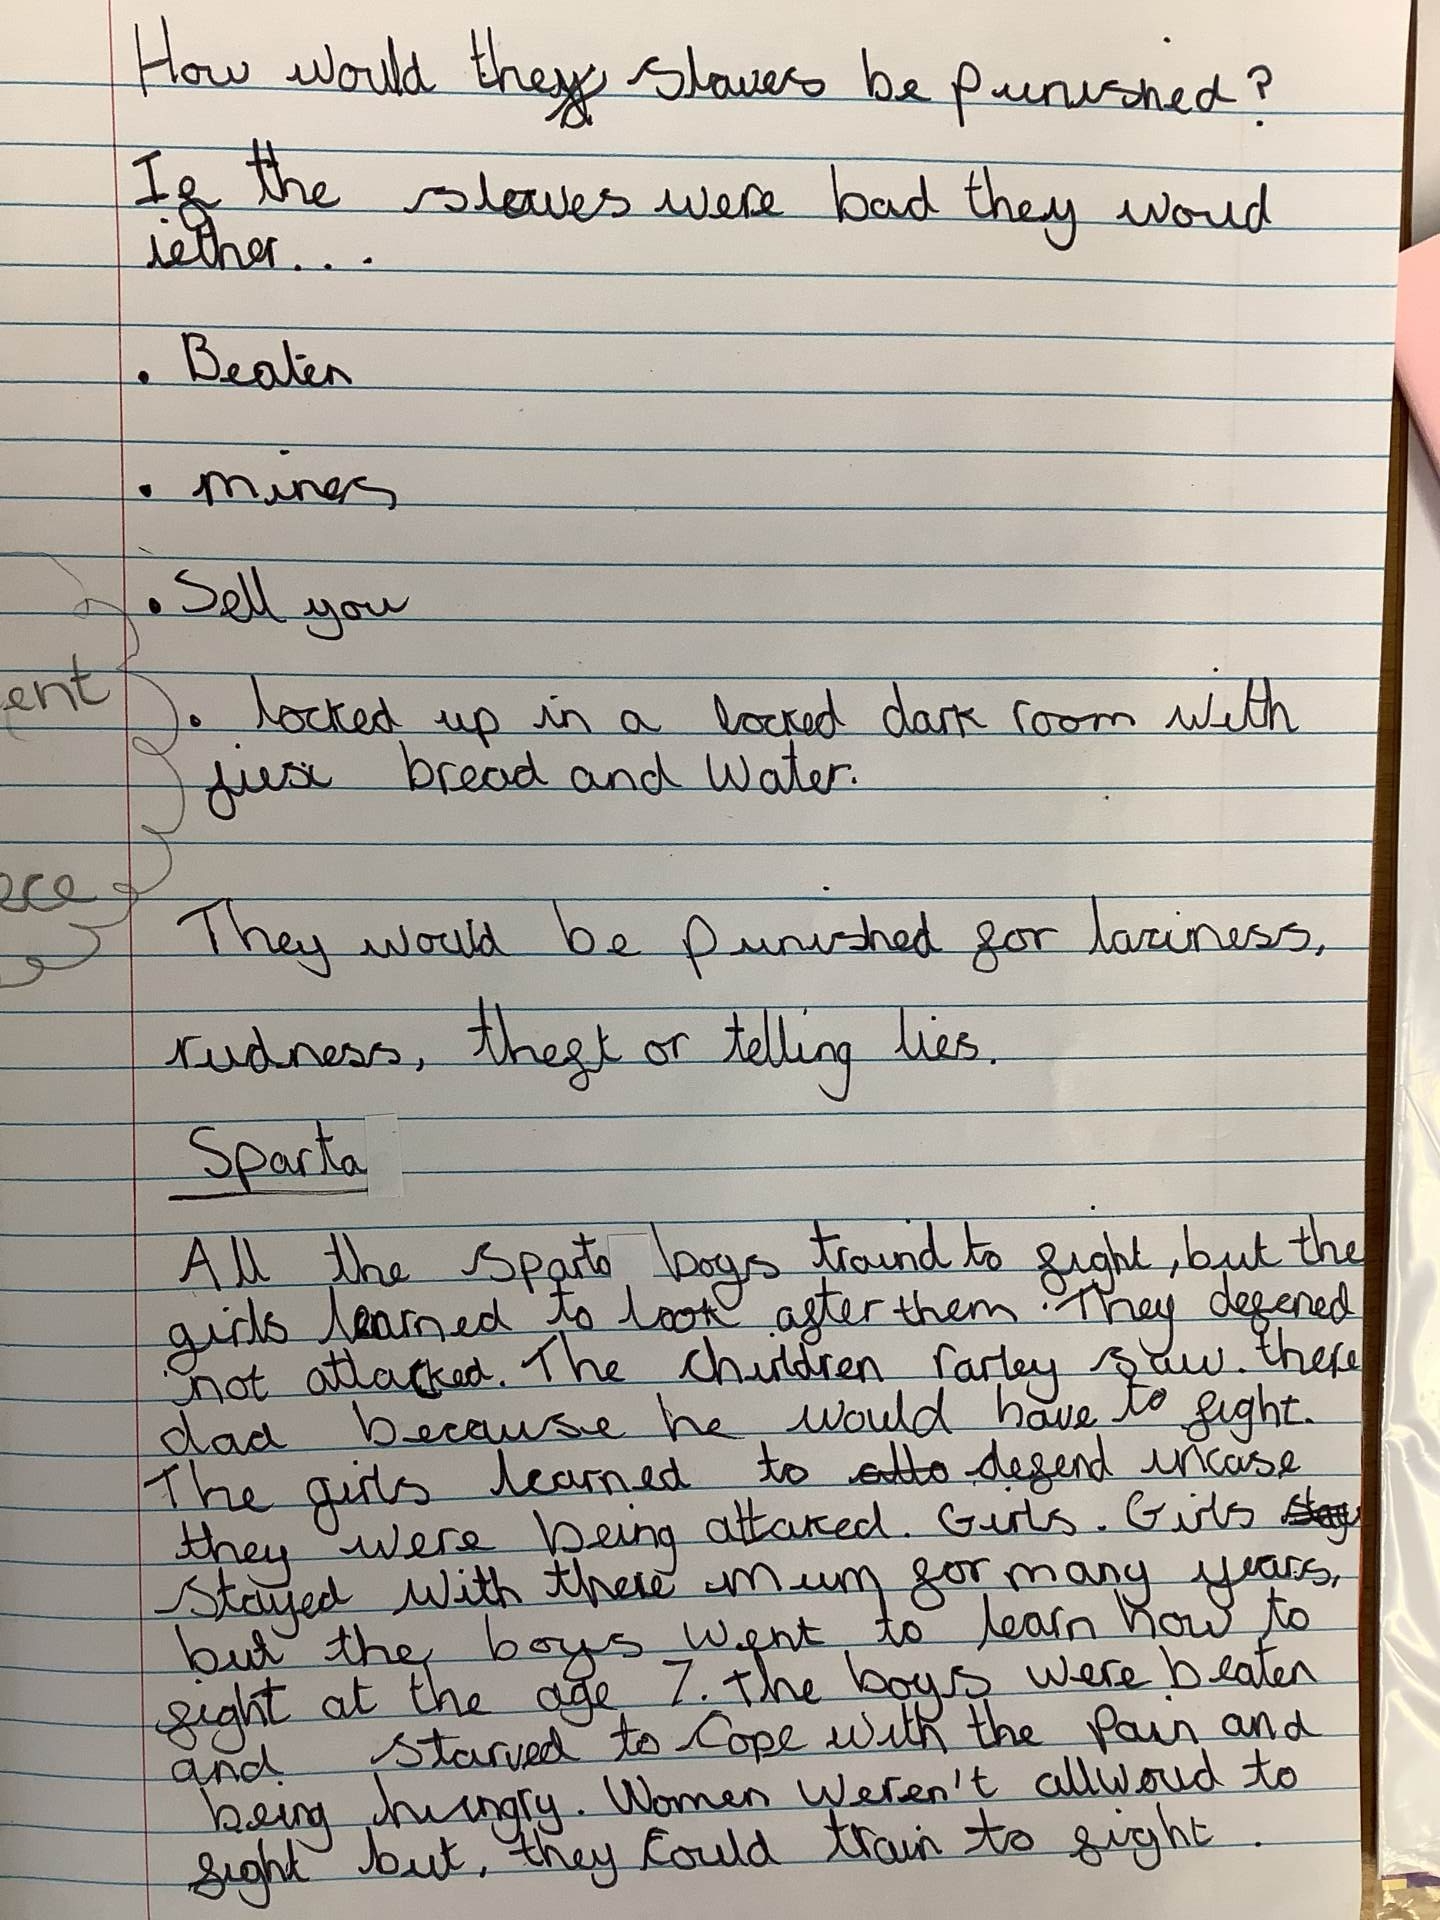 How would they slaves be punished?
If the slaves were bad they woud
iether...
. Beaten
. miners
. Sell you
ent
. locked up in a locked dark room with
just bread and Water.
They would be punished for laziness,
rudness, theft or telling lies.
Sparta
All the sparta boys traind to fight, but the
girls learned to look after them. They defened
not attacked. The children rarley saw there
dad because he would have to fight.
The girls learned to atta defend incase
they were being attaked. Girls. Girls stay
stayed with there mum for many years,
but the boys went to learn how to
fight at the age 7. the boys were beaten
and starved to cope with the pain and
being hungry. Women weren't allwoud to
fight but, they could train to fight.